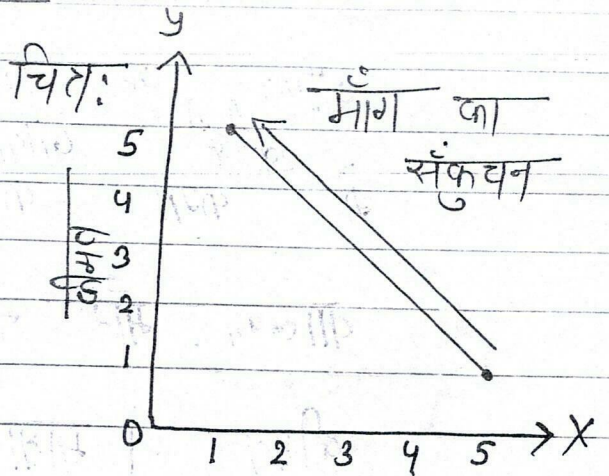 y
चित्र:
माँग का
संकुचन
5
4
3
2
1
0
1 2 3 4 5 X